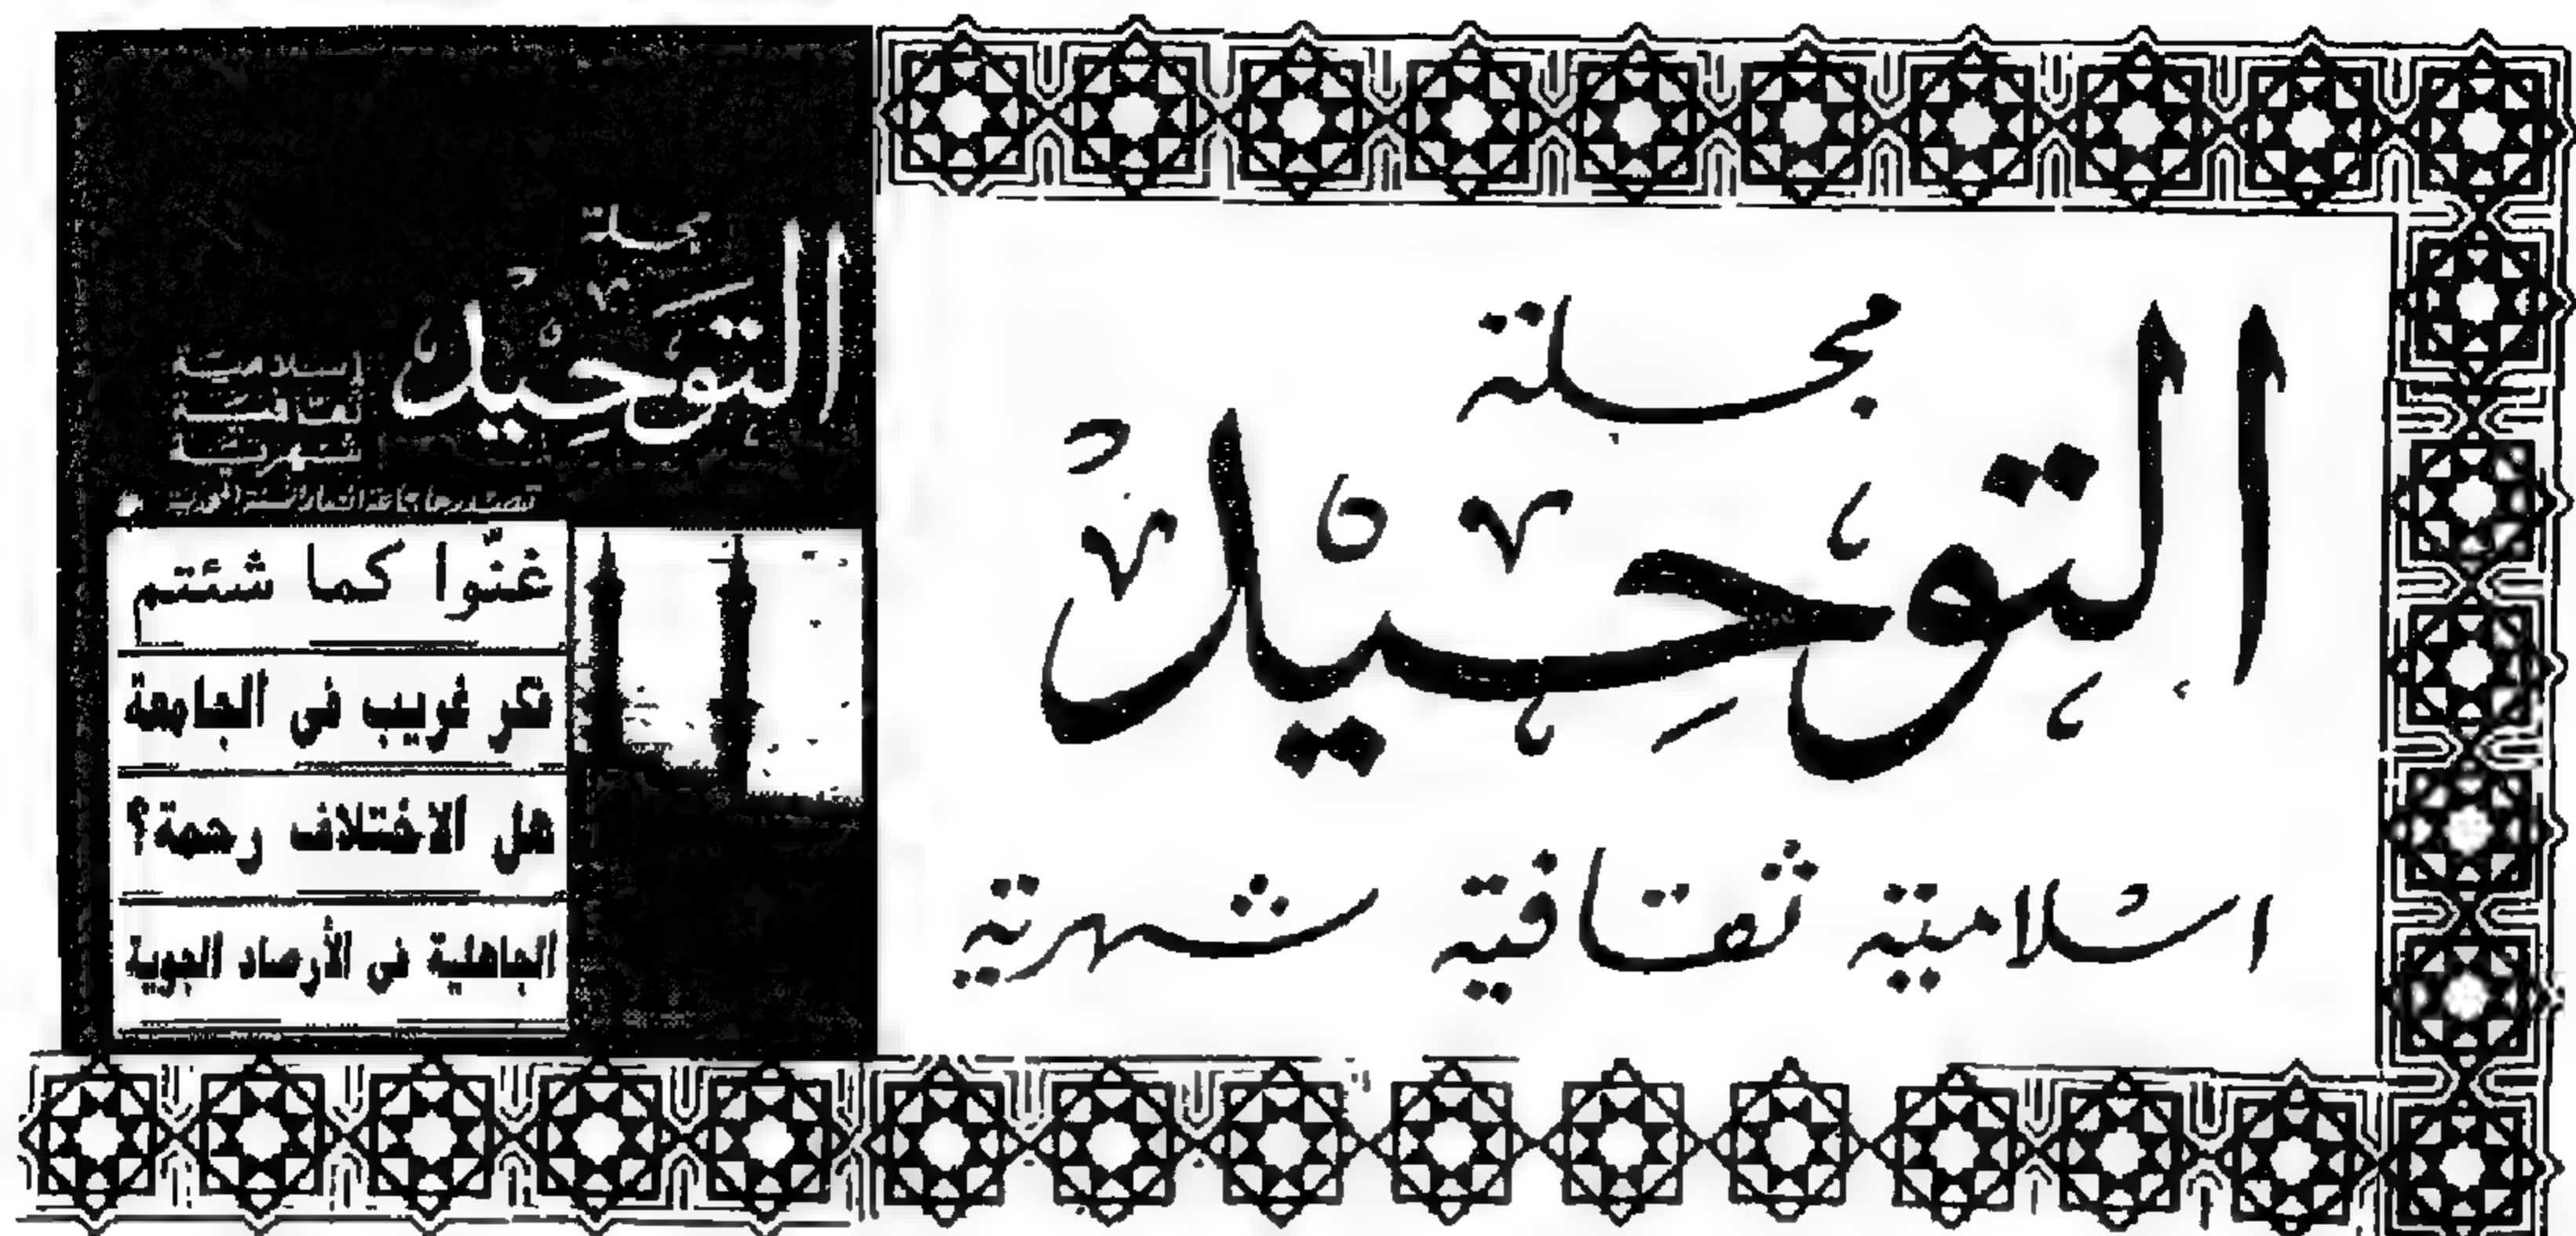 مجلة
التَّوحِيدْ
اسْلاميّة ثقافية شهرية
مجلة
التَّوحِيدْ
إسلاميّة
ثقافية
شهريّة
تصدرها جماعة أنصار السنة المحمدية
غنّوا كما شئتم
فكر غريب فى الجامعة
هل الاختلاف رحمة؟
الجاهلية فى الأرصاد الجوية